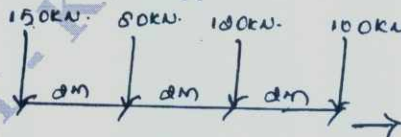 150KN. 60KN. 120KN. 100KN
2m 2m 2m